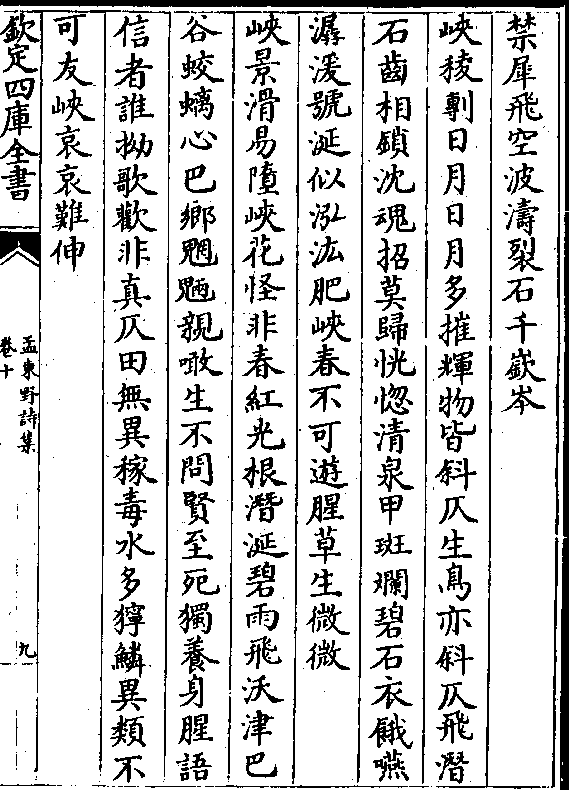 禁犀飛空波濤裂石千嶔岑
峽稜剸日月日月多摧輝物皆斜仄生鳥亦斜仄飛潛
石齒相鎖沈魂招莫歸恍惚清泉甲斑斕碧石衣餓嚥
潺湲號涎似泓浤肥峽春不可遊腥草生微微
峽景滑易墮峽花怪非春紅光根潛涎碧雨飛沃津巴
谷蛟螭心巴鄉魍魎親噉生不問賢至死獨養身腥語
信者誰拗歌歡非真仄田無異稼毒水多獰鱗異類不
可友峽哀哀難伸
欽定四庫全書
孟東野詩集
卷十
九